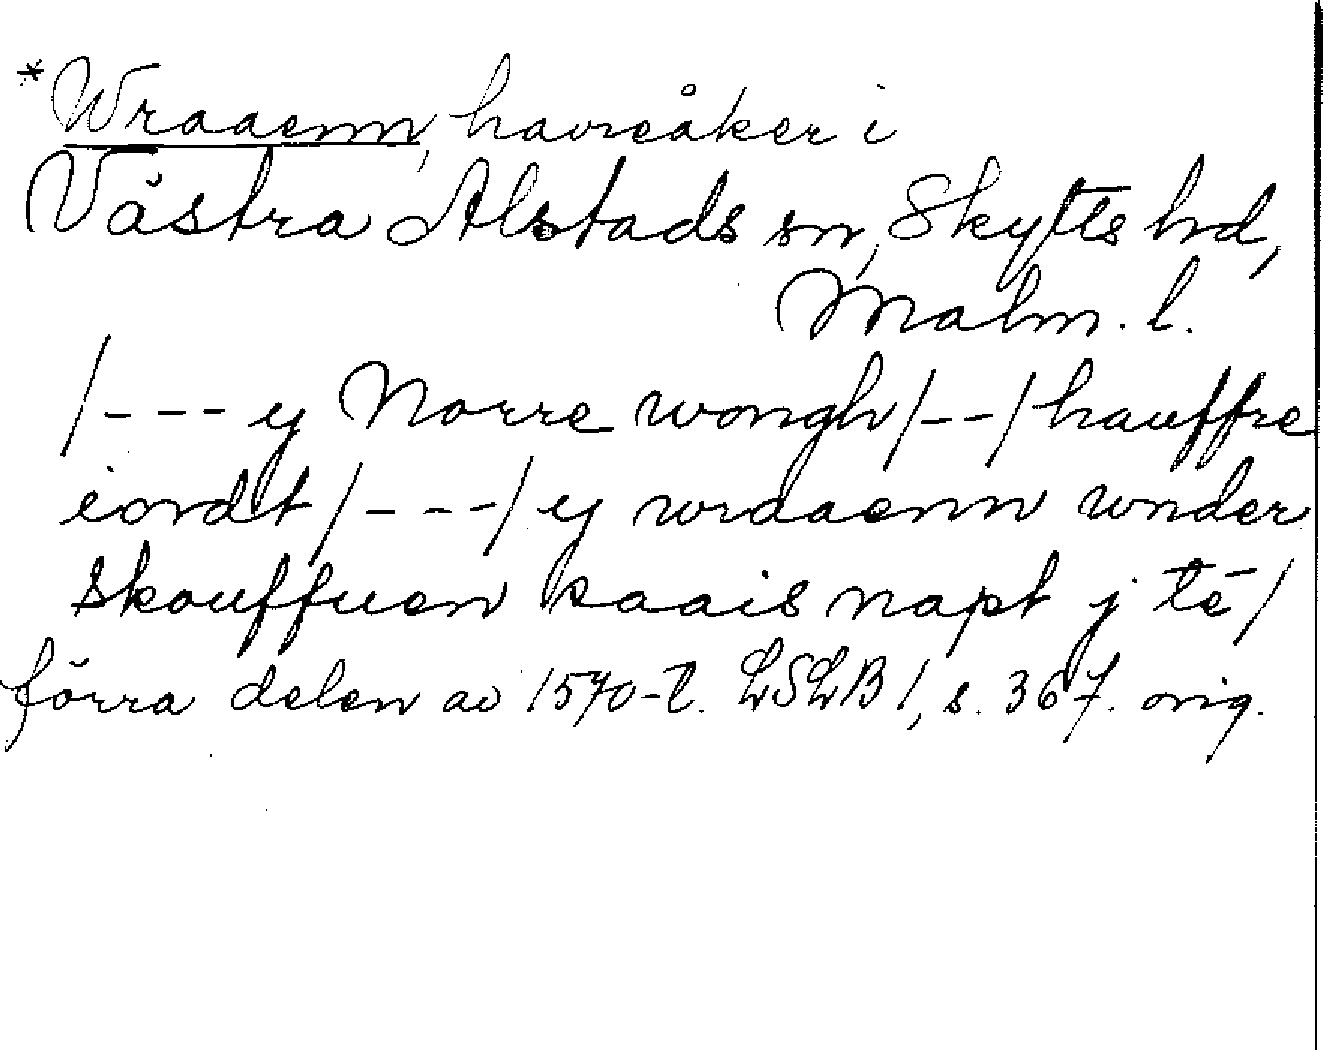 *Wraaenn, havreåker i
Västra Alstads sn, Skytts hd,
Malm. l.
/--- y Norre wongh/--/hauffre
iordt/---/ y wraaenn wnder
skouffuen kaais napt j tē/
förra delen av 1570-t. LSLB 1, s. 367. orig.